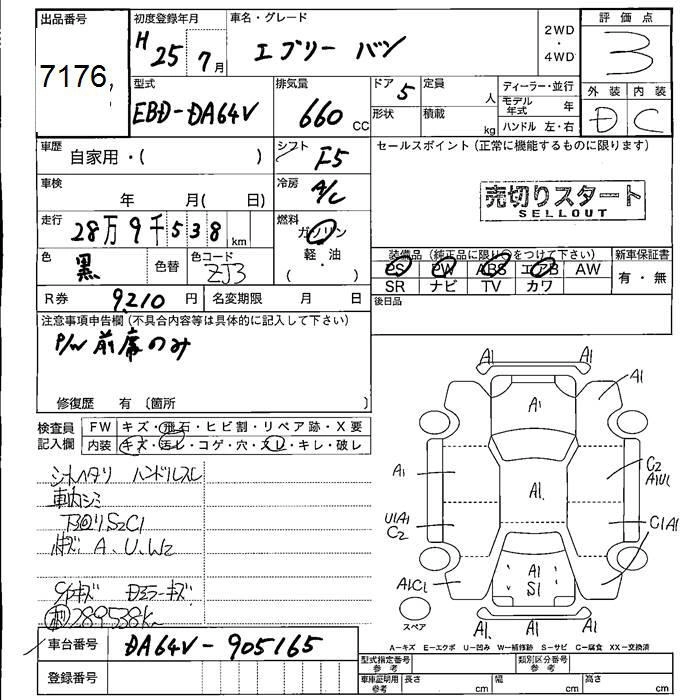 出品番号
7176,
初度登録年月
H 25 7月
車名・グレード
エブリー バン
2WD
・
4WD
評価点
3
型式
EBD-DA64V
排気量
660 CC
ドア 5
形状
定員
人
積載
kg
ディーラー・並行
モデル年式 年
ハンドル 左・右
外装 内装
D C
車歴
自家用・( )
シフト
F5
セールスポイント(正常に機能するものに限ります)
車検
年 月( 日)
冷房
A/C
売切りスタート
SELLOUT
走行
28万9千538 km
燃料
ガソリン
軽・油
( )
色
黒
色替
色コード
ZJ3
装備品(純正品に限り○をつけて下さい)
新車保証書
PS PW ABS エアB AW
SR ナビ TV カワ
有・無
R券 9,210 円
名変期限 月 日
後日品
注意事項申告欄(不具合内容等は具体的に記入して下さい)
P/W 前席のみ
修復歴 有 〔箇所
検査員
記入欄
FW キズ・飛石・ヒビ割・リペア跡・X要
内装 キズ・汚レ・コゲ・穴・スレ・キレ・破レ
シートヘタリ ハンドルスレ
車内シミ
下回りS2C1
A、U、W2
Dミラーキズ
289538k
A1 A1
A1 A1
A1 A1 C2
A1U1
U1A1
C2
C1A1
A1C1
A1
S1
スペア
A1 A1 A1
A-キズ E-エクボ U-凹み W-補修跡 S-サビ C-腐食 XX-交換済
車台番号 DA64V-905165
登録番号
型式指定番号
参考
類別区分番号
参考
車庫証明用
参考
長さ cm
幅 cm
高さ cm